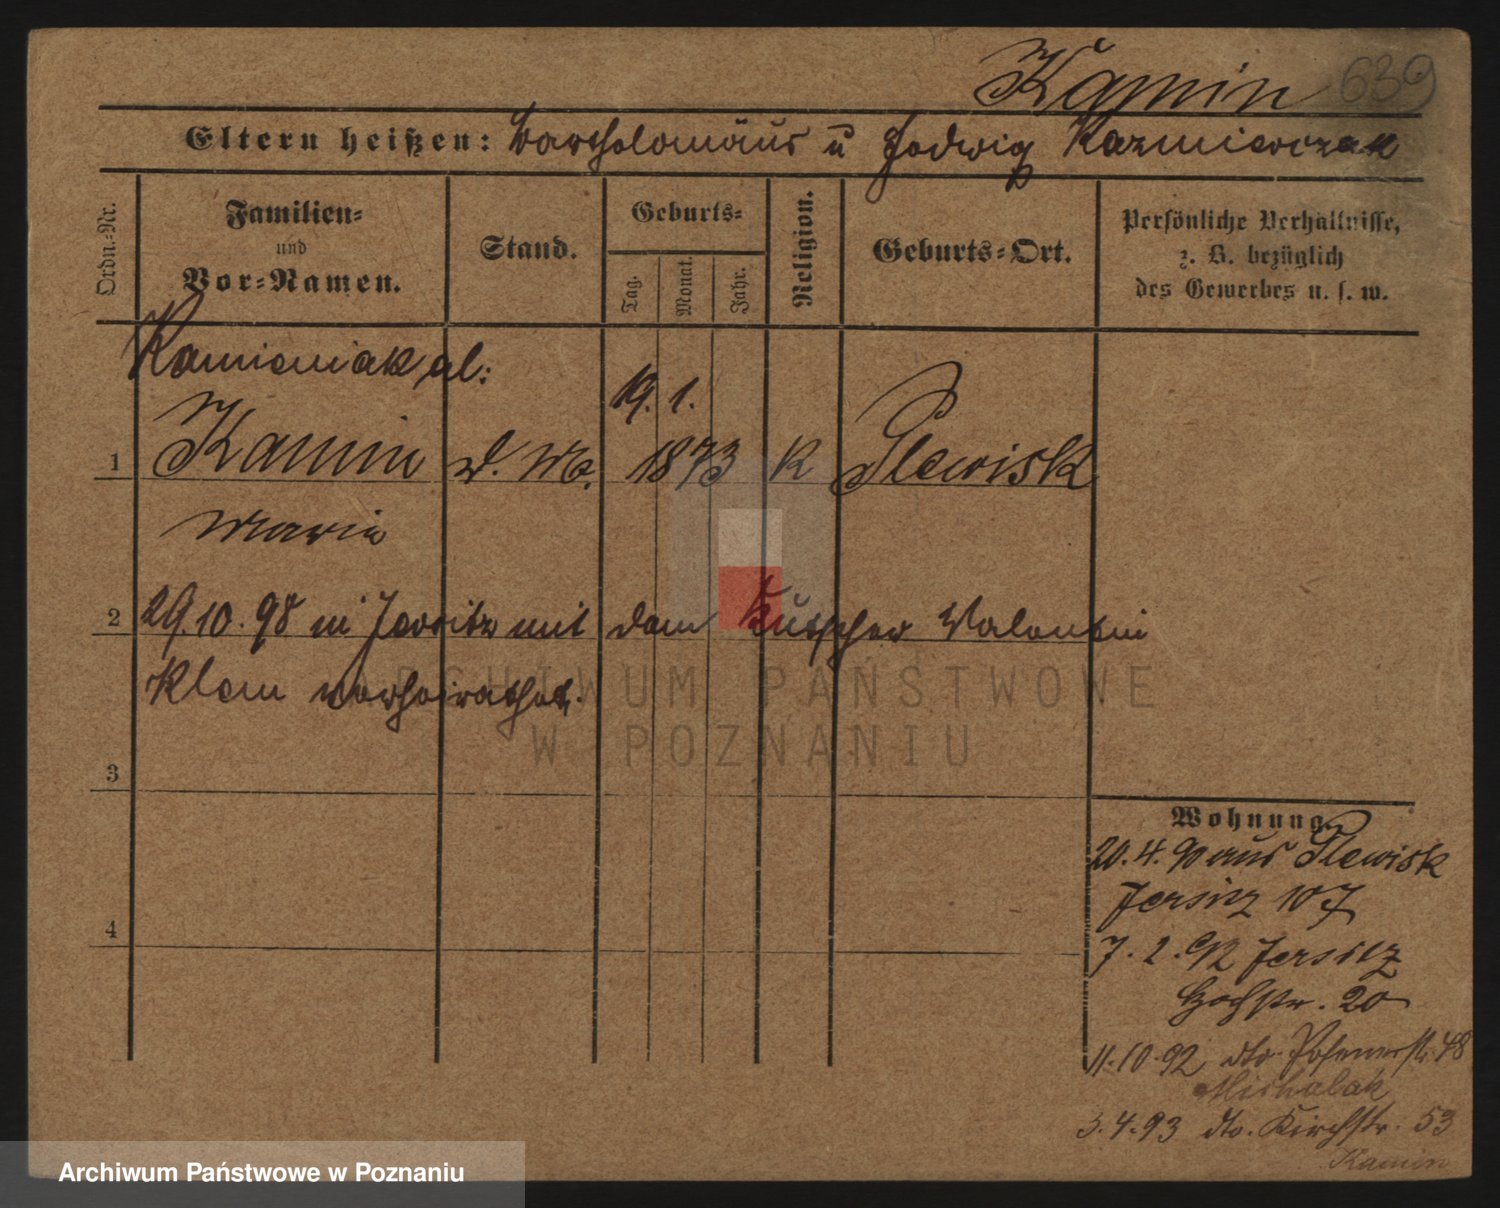 Kamin 639
Eltern heißen: Bartholomäus u Hedwig Kazmierczak
Ordn.-Nr.
Familien-
und
Vor-Namen.
Stand.
Geburts-
Tag.
Monat.
Jahr.
Religion.
Geburts-Ort.
Persönliche Verhältnisse,
z. B. bezüglich
des Gewerbes u. s. w.
Kamieniak al:
19. 1.
1 Kamin d. M. 1873 K Plewisk
Marie
2 29.10.98 in Jersitz mit dem Kutscher Valentin
Klem verheirathet.
ARCHIWUM PAŃSTWOWE
W POZNANIU
3
4
Wohnung.
20.4.90 aus Plewisk
Jersitz 107
7.2.92 Jersitz
Hochstr. 20
11.10.92 dto. Posenerstr. 48
Michalak
3.4.93 dto. Kirchstr. 53
Kamin
Archiwum Państwowe w Poznaniu